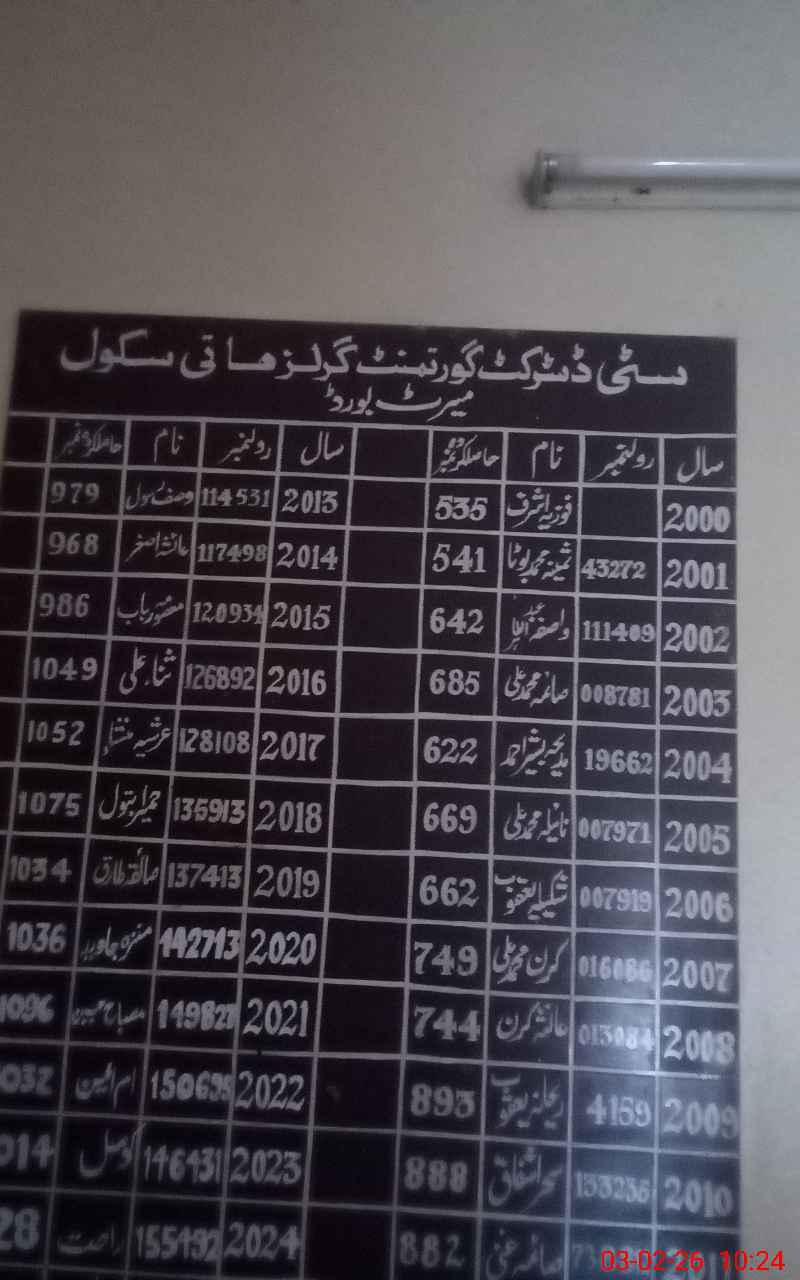 سٹی ڈسٹرکٹ گورنمنٹ گرلز ہائی سکول
میرٹ بورڈ
سال رولنمبر نام حاصلکردہ نمبر سال رولنمبر نام حاصلکردہ نمبر
2000 فوزیہ اشرف 535 2013 114531 979
2001 43272 ثمینہ محمد بوٹا 541 2014 117498 عائشہ اصغر 968
2002 111409 واصفہ عبد 642 2015 120934 986
2003 008781 صائمہ محمد علی 685 2016 126892 ثناء علی 1049
2004 19662 مدیحہ بشیر احمد 622 2017 128108 عرشیہ 1052
2005 007971 نائیلہ محمد علی 669 2018 135913 حمیرا بتول 1075
2006 007919 شکیلہ یعقوب 662 2019 137413 صائقہ طارق 1034
2007 016086 کرن محمد علی 749 2020 142713 منزہ جاوید 1036
2008 013084 عائشہ کرن 744 2021 مصباح 1096
2009 4159 ریحانہ یعقوب 893 2022 ام البنین 032
2010 سحر اشفاق 888 2023 146431 کومل 014
صائمہ غنی 882 2024 155492 راحت 28
03-02-26 10:24